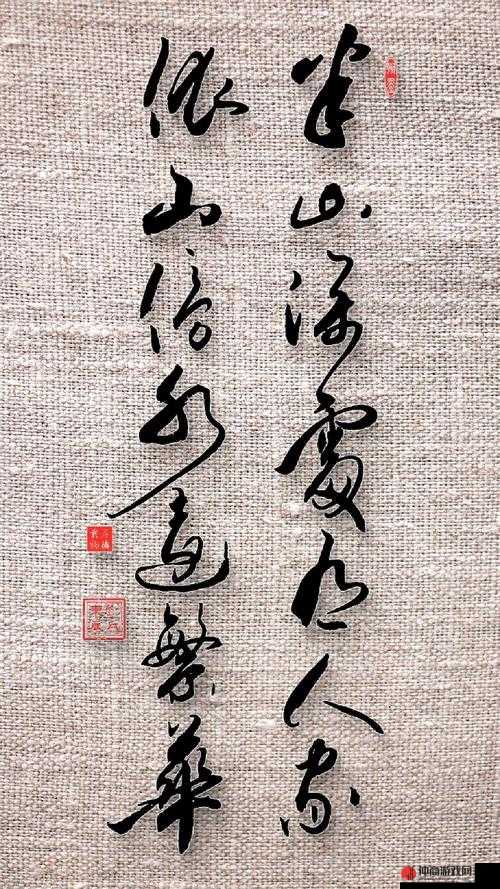 半山深處有人家
依山傍水遠繁華
仲商游戏网